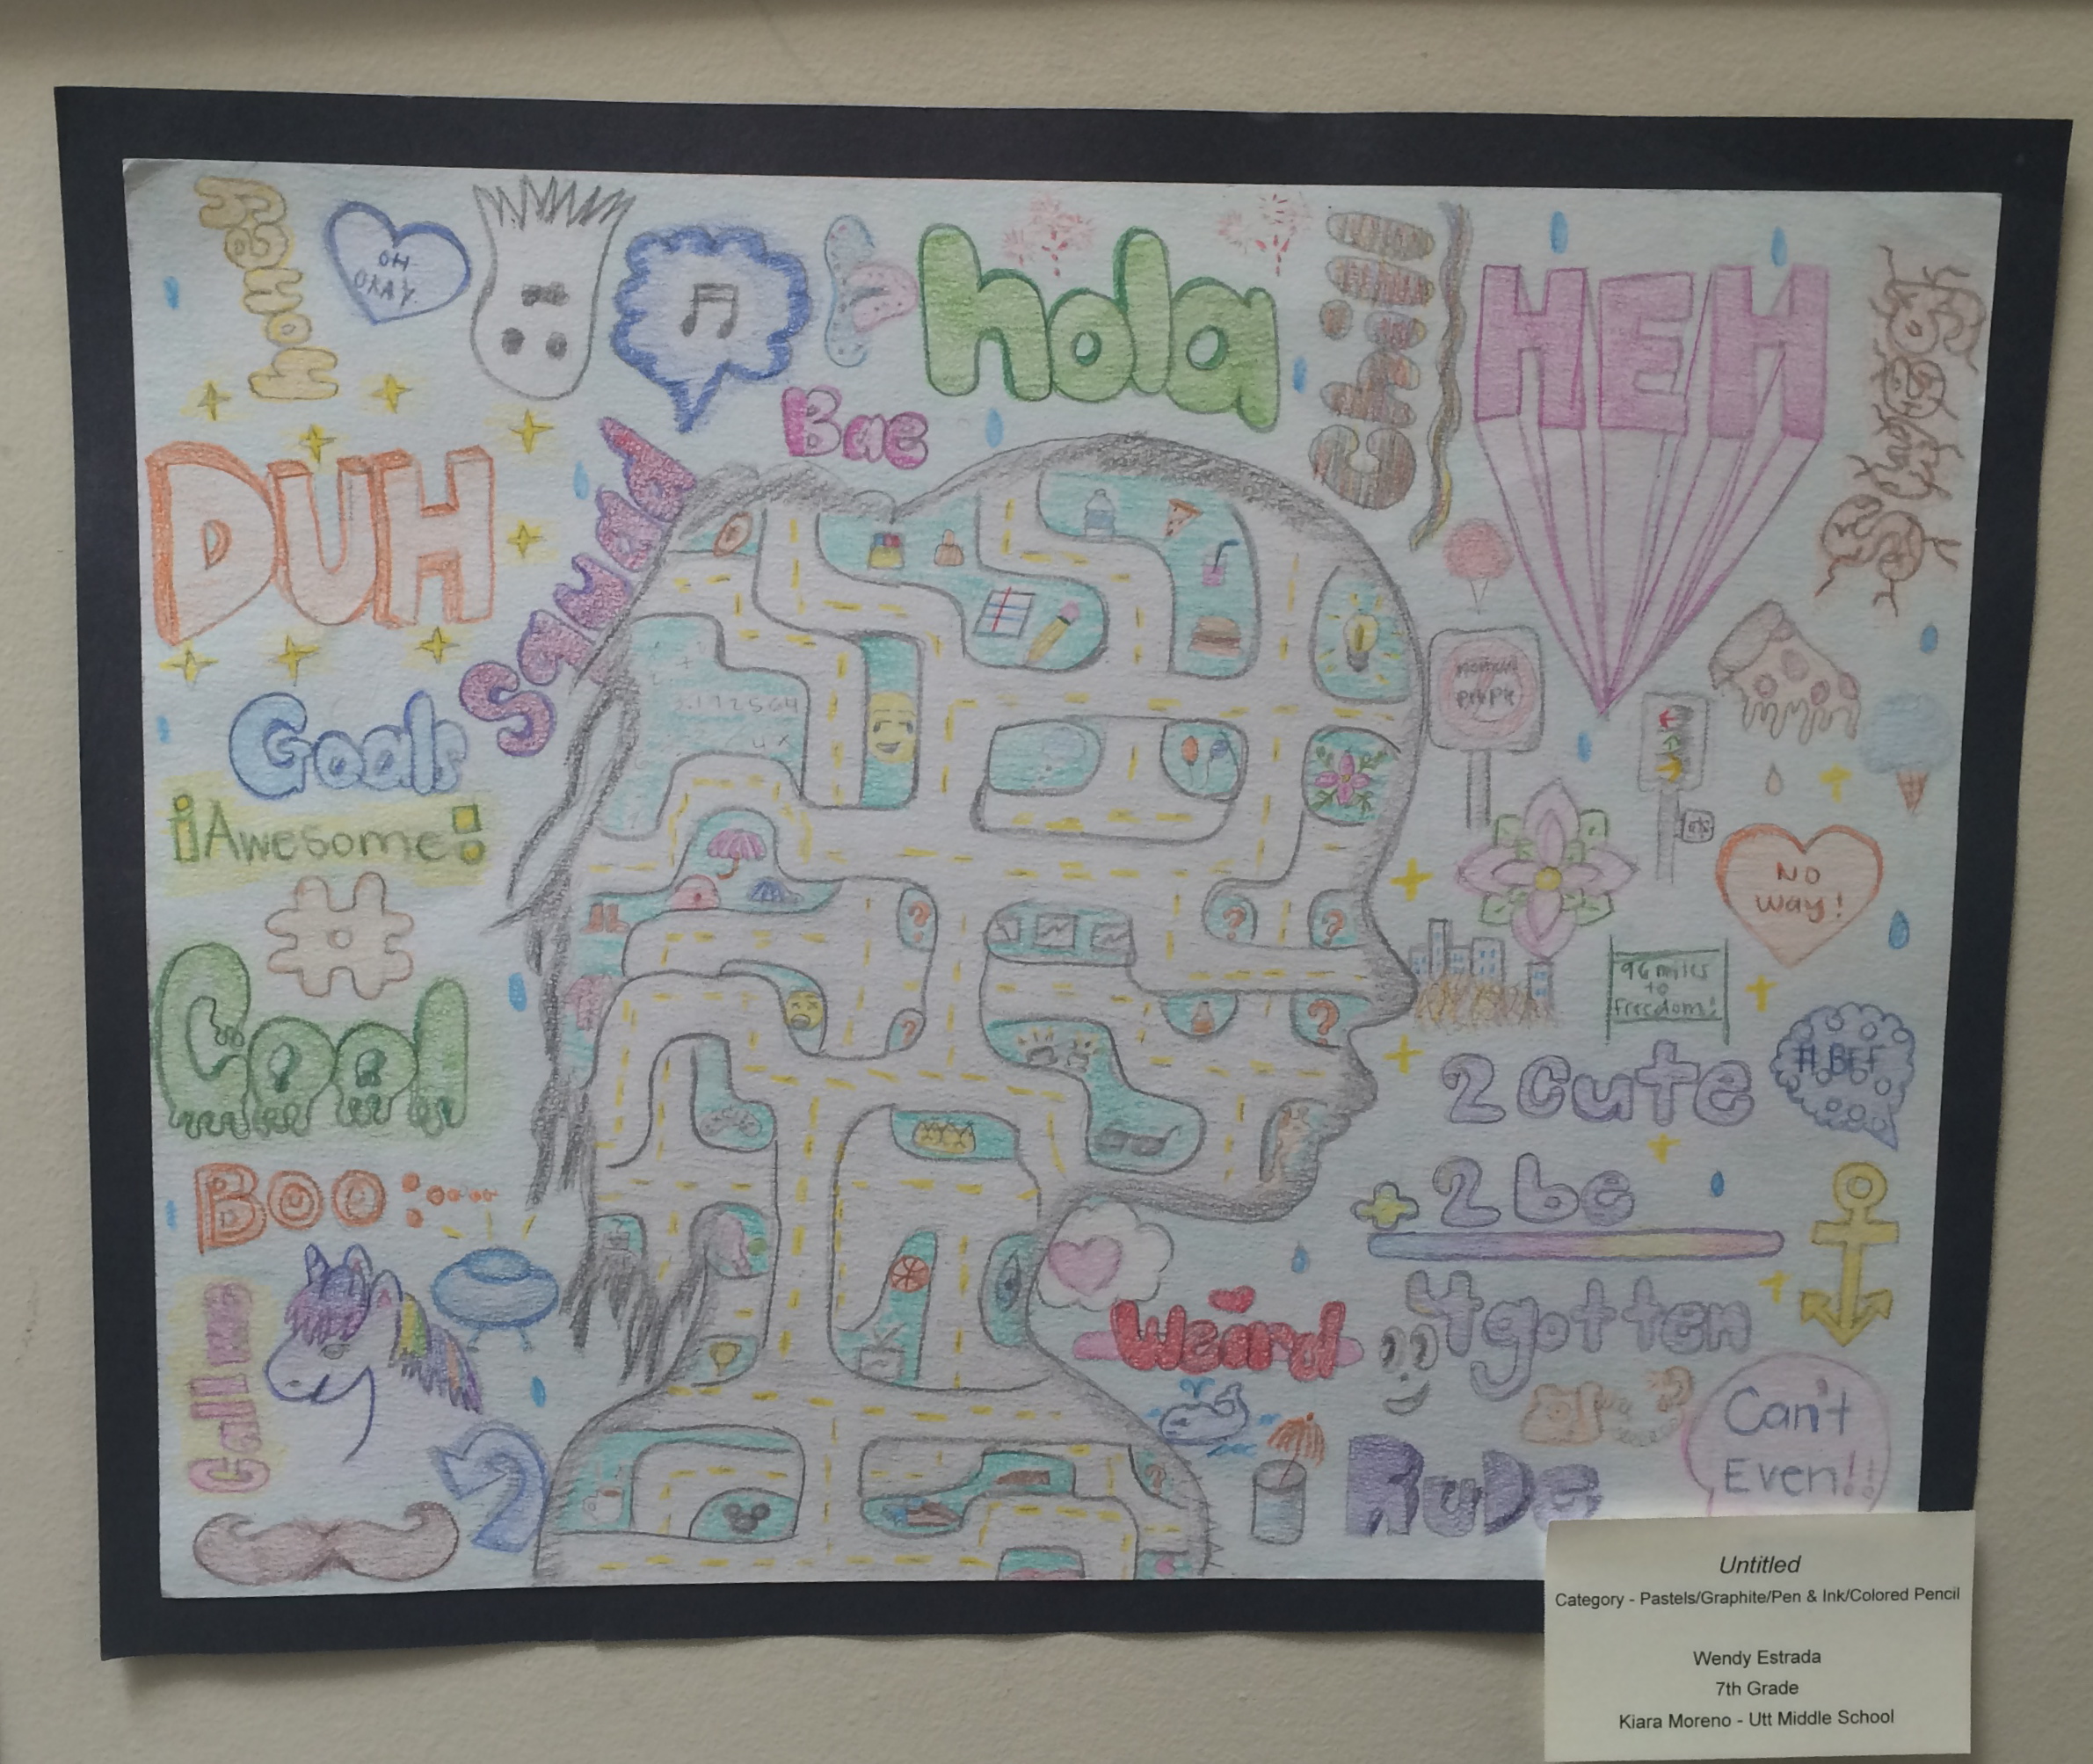 honey
OH
OKAY.
hola
Chill
HEH
Bae
DUH
Squad
Goals
¡Awesome!
#
Cool
Boo:
Call me
normal
people
NO
way!
96 miles
to
freedom!
# BFF
2 cute
+ 2 be
4gotten
Weird
Rude
Can't
Even!!
?
?
?
?
?
?
Untitled
Category - Pastels/Graphite/Pen & Ink/Colored Pencil
Wendy Estrada
7th Grade
Kiara Moreno - Utt Middle School